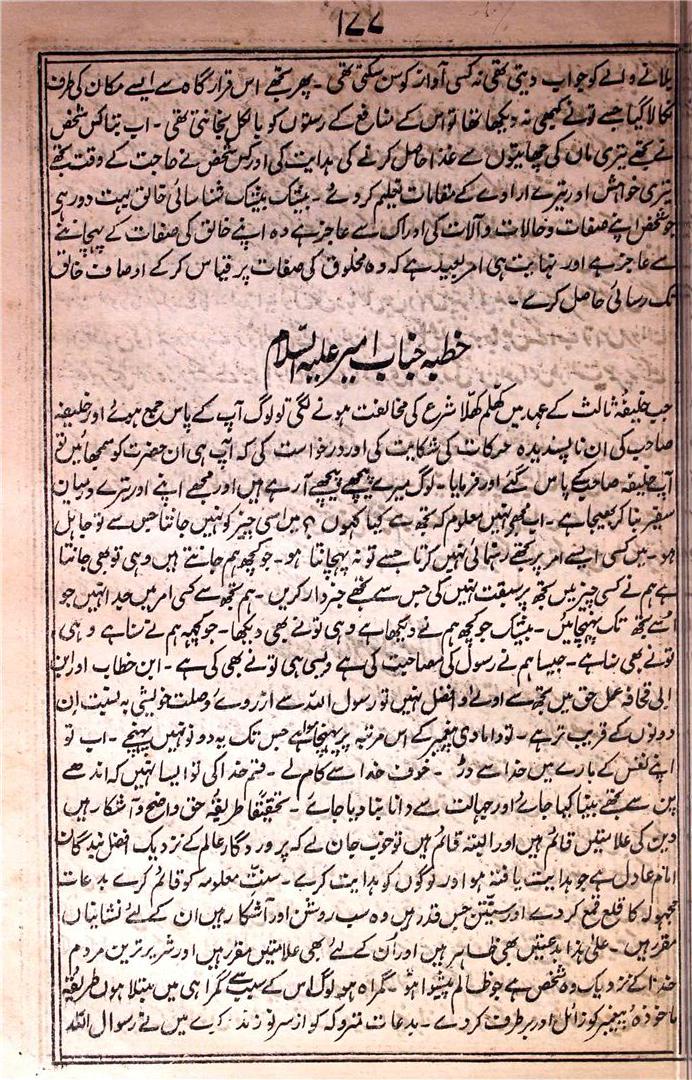 ۱۷۷
بلانے والے کو جواب دیتی تھی نہ کسی آواز کو سن سکتی تھی ۔ پھر تجھے اس قرار گاہ سے ایسے مکان کی طرف
نکالا گیا جسے تو نے کبھی نہ دیکھا تھا تو اس کے منافع کے رستوں کو بالکل نہ جانتی تھی ۔ اب بتا کس شخص
نے تجھے تیری ماں کی چھاتیوں سے غذا حاصل کرنے کی ہدایت کی اور کس شخص نے حاجت کے وقت تجھے
تیری خواہش اور تیرے ارادے کے مقامات تعلیم کر دئے ۔ بیشک بیشک شناسائی خالق بہت دور ہے
جو شخص اپنے صفات و حالات و آلات کی ادراک سے عاجز ہے وہ اپنے خالق کی صفات کے پہچاننے
سے عاجز ہے اور نہایت ہی امر بعید ہے کہ وہ مخلوق کی صفات پر قیاس کر کے اوصاف خالق
تک رسائی حاصل کرے ۔
خطبہ جناب امیر علیہ السلام
جب خلیفۂ ثالث کے عہد میں کھلم کھلا شرع کی مخالفت ہونے لگی تو لوگ آپ کے پاس جمع ہوئے اور خلیفہ
صاحب کی ان ناپسندیدہ حرکات کی شکایت کی اور درخواست کی کہ آپ ہی ان حضرت کو سمجھائیں تو
آپ خلیفہ صاحب کے پاس گئے اور فرمایا ۔ لوگ میرے پیچھے پیچھے آ رہے ہیں اور مجھے اپنے اور تیرے درمیان
سفیر بنا کر بھیجا ہے ۔ اب مجھے نہیں معلوم کہ تجھ سے کیا کہوں ؟ میں ایسی چیز کو نہیں جانتا جس سے تو جاہل
ہو ۔ میں کسی ایسے امر پر تجھے رہنمائی نہیں کرتا جسے تو نہ پہچانتا ہو ۔ جو کچھ ہم جانتے ہیں وہی تو بھی جانتا
ہے ہم نے کسی چیز میں تجھ پر سبقت نہیں کی جس سے تجھے خبردار کریں ۔ ہم تجھ سے کسی امر میں جدا نہیں جو
اسے تجھ تک پہنچائیں ۔ بیشک جو کچھ ہم نے دیکھا ہے وہی تو نے بھی دیکھا ۔ جو کچھ ہم نے سنا ہے وہی
تو نے بھی سنا ہے ۔ جیسا ہم نے رسول کی مصاحبت کی ہے ویسی ہی تو نے بھی کی ہے ۔ ابن خطاب اور ابن
ابی قحافہ عمل حق میں تجھ سے اولے و افضل نہیں تو رسول اللہ سے از روے وصلت خویشی بہ نسبت ان
دونوں کے قریب تر ہے ۔ تو دامادی پیغمبر کے اس مرتبہ پر پہنچا ہوا ہے جس تک یہ دونوں نہیں پہنچے ۔ اب تو
اپنے نفس کے بارے میں خدا سے ڈر ۔ خوف خدا سے کام لے ۔ قسم خدا کی تو ایسا نہیں کہ اندھے
پن سے تجھے بینا کہا جائے اور جہالت سے دانا بنا دیا جائے ۔ تحقیقًا طریقۂ حق واضح و آشکار ہیں
دین کی علامتیں قائم ہیں اور البتہ قائم ہیں تو خوب جان لے کہ پروردگار عالم کے نزدیک افضل بندگان
امام عادل ہے جو ہدایت یافتہ ہو اور لوگوں کو ہدایت کرے ۔ سنت معلومہ کو قائم کرے بدعات
مجہولہ کا قلع قمع کر دے اور سنتیں جس قدر ہیں وہ سب روشن اور آشکار ہیں ان کے لئے نشانیاں
مقرر ہیں ۔ علیٰ ہذا بدعتیں بھی ظاہر ہیں اور ان کے لئے بھی علامتیں مقرر ہیں اور شریر ترین مردم
خدا کے نزدیک وہ شخص ہے جو ظالم پیشوا ہو ۔ گمراہ ہو لوگ اس کے سبب سے گمراہی میں مبتلا ہوں طریقۂ
ماخوذہ پیغمبر کو زائل اور برطرف کر دے ۔ بدعات متروکہ کو از سر نو زندہ کرے میں نے رسول اللہ